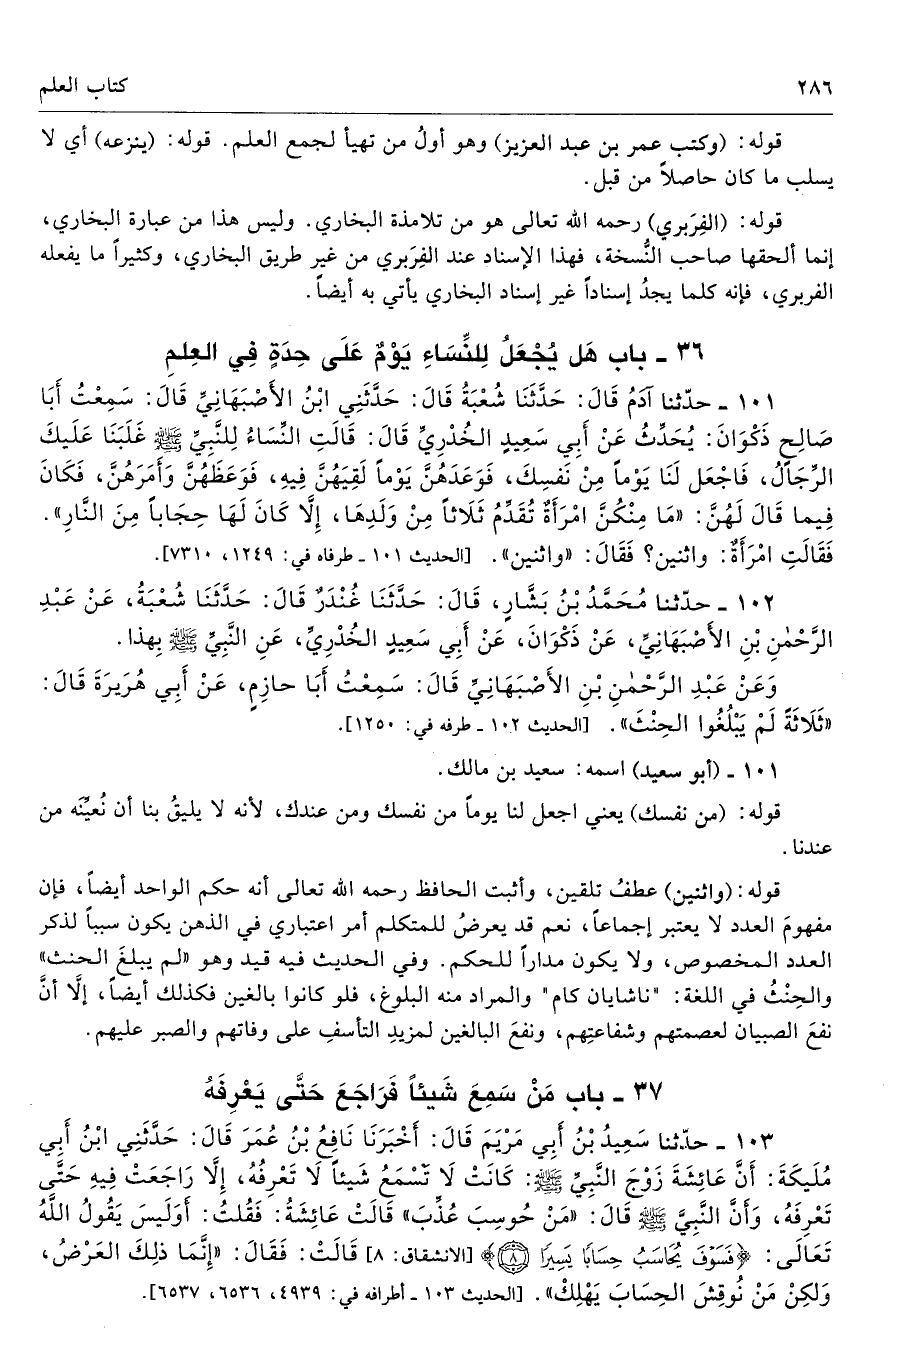 ٢٨٦ كتاب العلم
قوله: (وكتب عمر بن عبد العزيز) وهو أولُ من تهيأ لجمع العلم. قوله: (ينزعه) أي لا
يسلب ما كان حاصلاً من قبل.
قوله: (الفِرَبري) رحمه الله تعالى هو من تلامذة البخاري. وليس هذا من عبارة البخاري،
إنما ألحقها صاحب النُّسخة، فهذا الإسناد عند الفِرَبري من غير طريق البخاري، وكثيراً ما يفعله
الفربري، فإنه كلما يجدُ إسناداً غير إسناد البخاري يأتي به أيضاً.
٣٦ ـ باب هَل يُجْعَلُ لِلنِّسَاءِ يَوْمٌ عَلَى حِدَةٍ فِي العِلمِ
١٠١ ـ حدّثنا آدَمُ قَالَ: حَدَّثَنَا شُعْبَةُ قَالَ: حَدَّثَنِي ابْنُ الأَصْبَهَانِيِّ قَالَ: سَمِعْتُ أَبَا
صَالِحٍ ذَكْوَانَ: يُحَدِّثُ عَنْ أَبِي سَعِيدٍ الخُدْرِيِّ قَالَ: قَالَتِ النِّسَاءُ لِلنَّبِيِّ ﷺ غَلَبَنَا عَلَيكَ
الرِّجَالُ، فَاجْعَل لَنَا يَوْماً مِنْ نَفسِكَ، فَوَعَدَهُنَّ يَوْماً لَقِيَهُنَّ فِيهِ، فَوَعَظَهُنَّ وَأَمَرَهُنَّ، فَكَانَ
فِيما قَالَ لَهُنَّ: «مَا مِنْكُنَّ امْرَأَةٌ تُقَدِّمُ ثَلَاثاً مِنْ وَلَدِهَا، إِلَّا كَانَ لَهَا حِجَاباً مِنَ النَّارِ».
فَقَالَتِ امْرَأَةٌ: واثنين؟ فَقَالَ: «واثنين». [الحديث ١٠١ ـ طرفاه في: ١٢٤٩، ٧٣١٠].
١٠٢ ـ حدّثنا مُحَمَّدُ بْنُ بَشَّارٍ، قَالَ: حَدَّثَنَا غُنْدَرٌ قَالَ: حَدَّثَنَا شُعْبَةُ، عَنْ عَبْدِ
الرَّحْمٰنِ بْنِ الأَصْبَهَانِيِّ، عَنْ ذَكْوَانَ، عَنْ أَبِي سَعِيدٍ الخُدْرِيِّ، عَنِ النَّبِيِّ ﷺ بِهذا.
وَعَنْ عَبْدِ الرَّحْمٰنِ بْنِ الأَصْبَهَانِيِّ قَالَ: سَمِعْتُ أَبَا حازِمٍ، عَنْ أَبِي هُرَيرَةَ قَالَ:
«ثَلَاثَةً لَمْ يَبْلُغُوا الحِنْثَ». [الحديث ١٠٢ ـ طرفه في: ١٢٥٠].
١٠١ ـ (أبو سعيد) اسمه: سعيد بن مالك.
قوله: (من نفسك) يعني اجعل لنا يوماً من نفسك ومن عندك، لأنه لا يليقُ بنا أن نُعيِّنَه من
عندنا.
قوله:(واثنين) عطفُ تلقين، وأثبت الحافظ رحمه الله تعالى أنه حكم الواحد أيضاً، فإن
مفهومَ العدد لا يعتبر إجماعاً، نعم قد يعرضُ للمتكلم أمر اعتباري في الذهن يكون سبباً لذكر
العدد المخصوص، ولا يكون مداراً للحكم. وفي الحديث فيه قيد وهو «لم يبلغ الحنث»
والحِنْثُ في اللغة: "ناشايان كام" والمراد منه البلوغ، فلو كانوا بالغين فكذلك أيضاً، إلَّا أنَّ
نفعَ الصبيان لعصمتهم وشفاعتِهم، ونفعَ البالغين لمزيدِ التأسفِ على وفاتهم والصبر عليهم.
٣٧ ـ باب مَنْ سَمِعَ شَيئاً فَرَاجَعَ حَتَّى يَعْرِفَهُ
١٠٣ ـ حدّثنا سَعِيدُ بْنُ أَبِي مَرْيَمَ قَالَ: أَخْبَرَنَا نَافِعُ بْنُ عُمَرَ قَالَ: حَدَّثَنِي ابْنُ أَبِي
مُلَيكَةَ: أَنَّ عَائِشَةَ زَوْجَ النَّبِيِّ ﷺ: كَانَتْ لَا تَسْمَعُ شَيئاً لَا تَعْرِفُهُ، إِلَّا رَاجَعَتْ فِيهِ حَتَّى
تَعْرِفَهُ، وَأَنَّ النَّبِيَّ ﷺ قَالَ: «مَنْ حُوسِبَ عُذِّبَ» قَالَتْ عَائِشَةُ: فَقُلتُ: أَوَلَيسَ يَقُولُ اللَّهُ
تَعَالَى: ﴿فَسَوْفَ يُحَاسَبُ حِسَابًا يَسِيرًا ﴿٨﴾﴾ [الانشقاق: ٨] قَالَتْ: فَقَالَ: «إِنَّمَا ذلِكَ العَرْضُ،
وَلكِنْ مَنْ نُوقِشَ الحِسَابَ يَهْلِكْ». [الحديث ١٠٣ ـ أطرافه في: ٤٩٣٩، ٦٥٣٦، ٦٥٣٧].